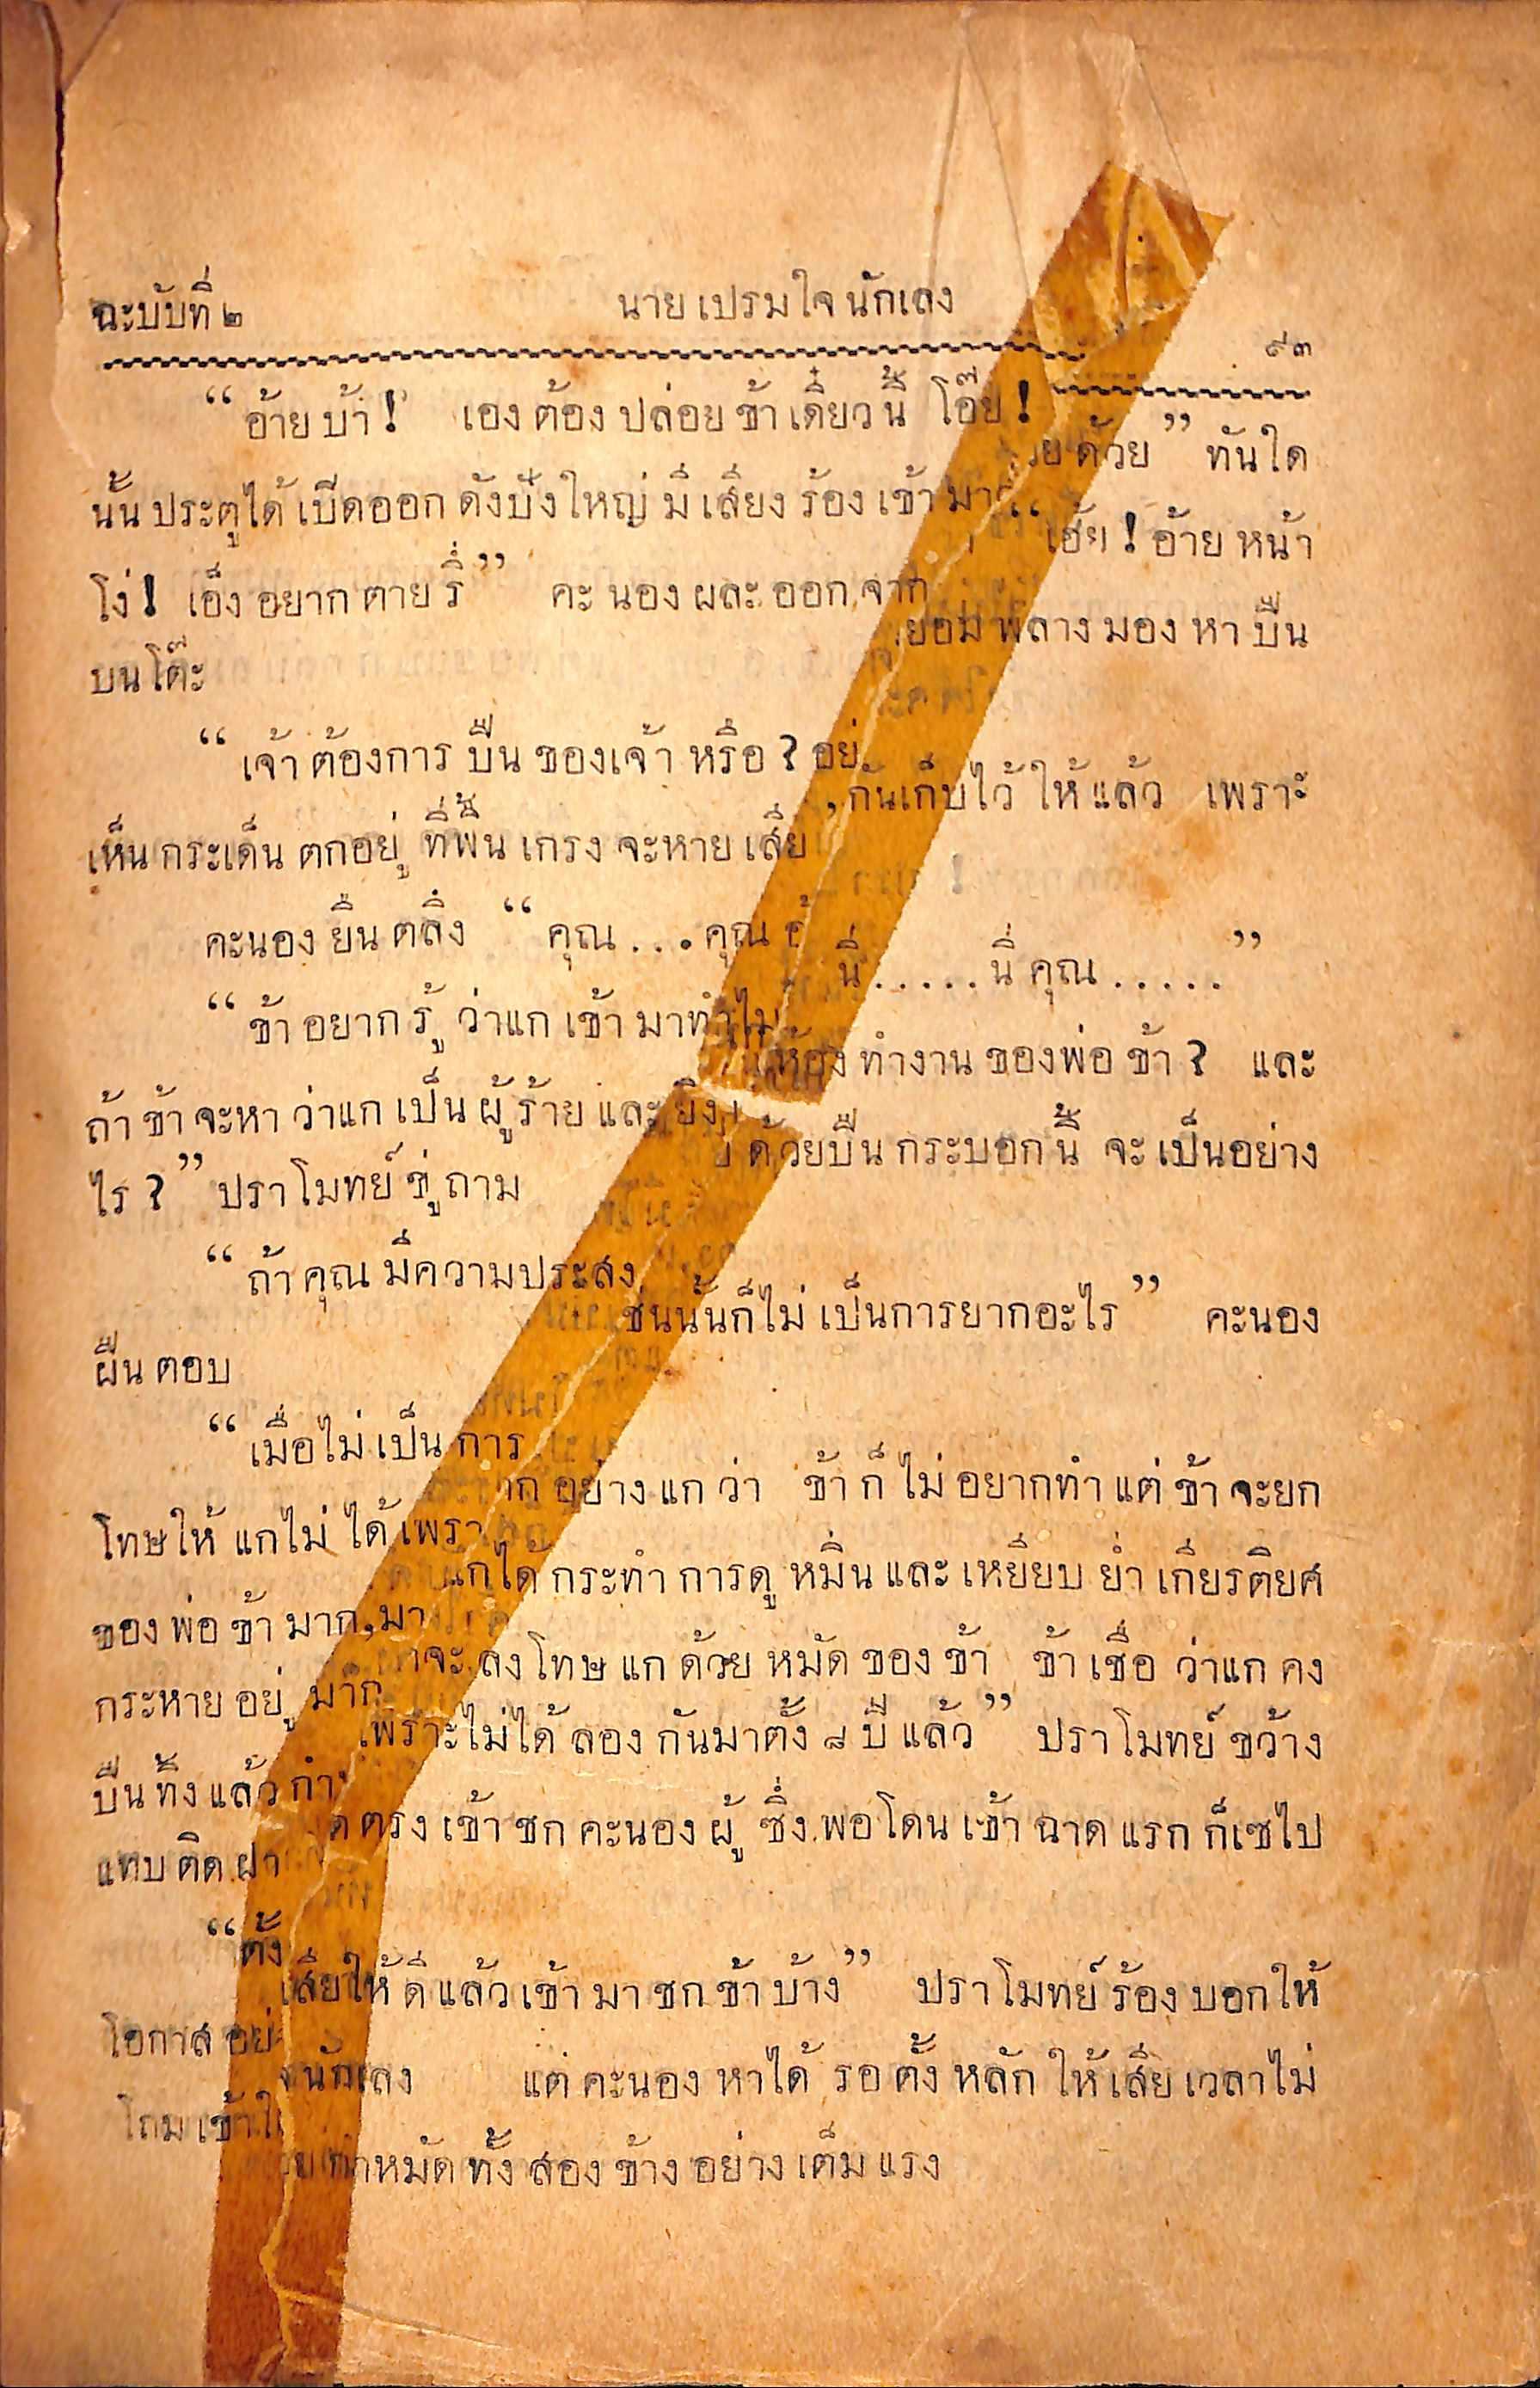 ฉะบับที่ ๒ นาย เปรม ใจ นักเลง ๙๓
“ อ้าย บ้า ! เอง ต้อง ปล่อย ข้า เดี๋ยว นี้ โอ๊ย ! ด้วย ” ทันใด
นั้น ประตูได้ เปิดออก ดังปังใหญ่ มี เสียง ร้อง เข้า มา “ เฮ้ย ! อ้าย หน้า
โง่ ! เอ็ง อยาก ตาย รึ่ ” คะ นอง ผละ ออก จาก พลาง มอง หา ปืน
บน โต๊ะ
“ เจ้า ต้องการ ปืน ของเจ้า หรือ ? กันเก็บไว้ ให้ แล้ว เพราะ
เห็น กระเด็น ตกอยู่ ที่พื้น เกรง จะหาย เสีย
คะนอง ยืน ตลึง “ คุณ . . . คุณ นี่ . . . . . . นี่ คุณ . . . . . . ”
“ ข้า อยาก รู้ ว่าแก เข้า มาทำไม ห้อง ทำงาน ของพ่อ ข้า ? และ
ถ้า ข้า จะหา ว่าแก เป็น ผู้ ร้าย และ ยิง ด้วยปืน กระบอก นี้ จะ เป็นอย่าง
ไร ? ” ปราโมทย์ ขู่ ถาม
“ ถ้า คุณ มีความประสง เช่นนั้นก็ไม่ เป็นการยากอะไร ” คะนอง
ฝืน ตอบ
“ เมื่อไม่ เป็น การ อย่าง แก ว่า ข้า ก็ ไม่ อยากทำ แต่ ข้า จะยก
โทษให้ แกไม่ ได้ เพรา แกได้ กระทำ การดู หมิ่น และ เหยียบ ย่ำ เกียรติยศ
ของ พ่อ ข้า มาก มา จะ ลงโทษ แก ด้วย หมัด ของ ข้า ข้า เชื่อ ว่าแก คง
กระหาย อยู่ มาก เพราะไม่ได้ ลอง กันมาตั้ง ๘ ปี แล้ว ” ปราโมทย์ ขว้าง
ปืน ทิ้ง แล้ว กำ ตรง เข้า ชก คะนอง ผู้ ซึ่ง พอ โดน เข้า ฉาด แรก ก็เซไป
แทบ ติด ฝา
“ ตั้ง เสียให้ ดี แล้ว เข้า มา ชก ข้า บ้าง ” ปราโมทย์ ร้อง บอกให้
โอกาส นักเลง แต่ คะนอง หาได้ รอ ตั้ง หลัก ให้ เสีย เวลาไม่
โถม เข้า กำหมัด ทั้ง สอง ข้าง อย่าง เต็ม แรง